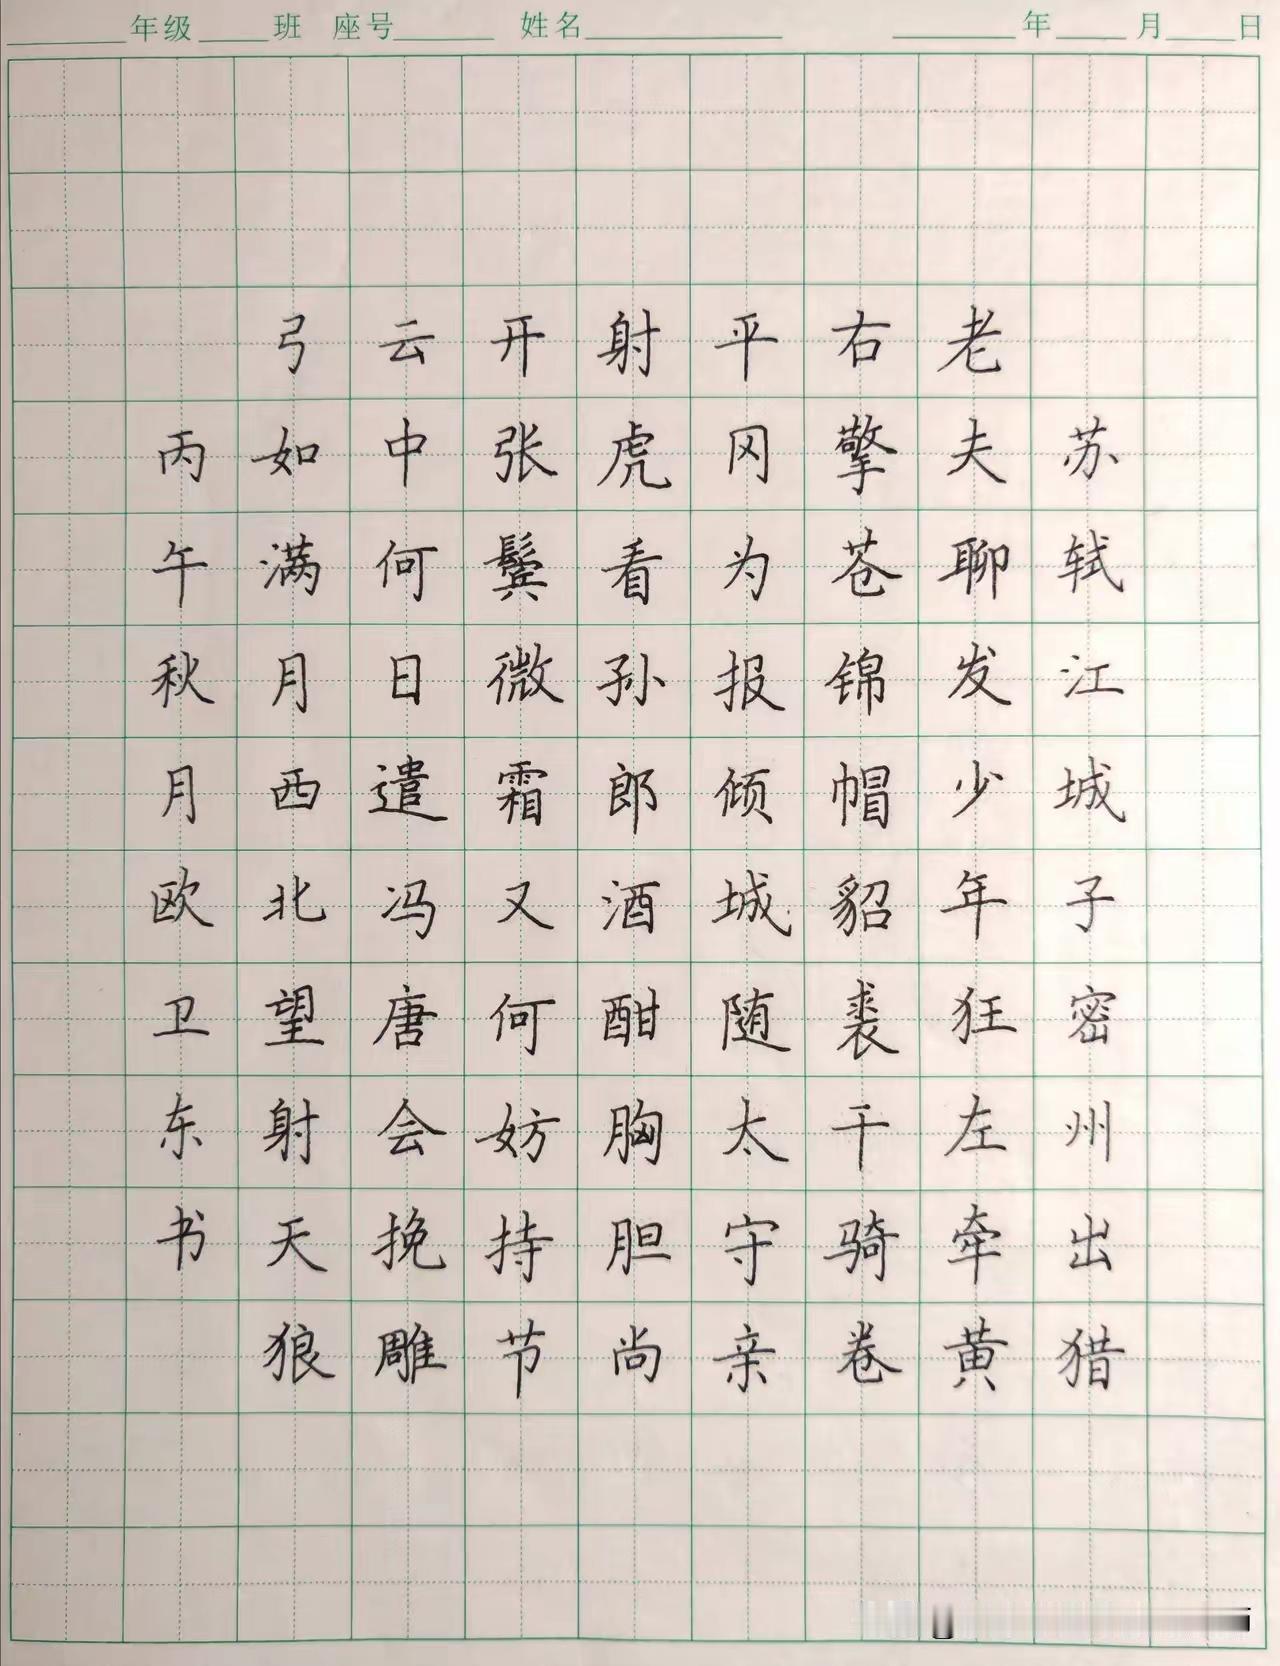 年级 班 座号 姓名 年 月 日
苏轼江城子密州出猎
老夫聊发少年狂左牵黄
右擎苍锦帽貂裘千骑卷
平冈为报倾城随太守亲
射虎看孙郎酒酣胸胆尚
开张鬓微霜又何妨持节
云中何日遣冯唐会挽雕
弓如满月西北望射天狼
丙午秋月欧卫东书